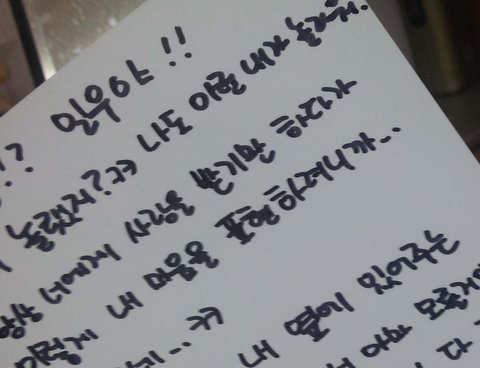 !? 일우야!!
놀랬지?ㅋㅋ 나도 이런 내가 놀라워.
항상 너에게 사랑을 받기만 하다가
이렇게 내 마음을 표현하려니까...
...ㅋㅋ
내 옆에 있어주는
아마 모를거
다